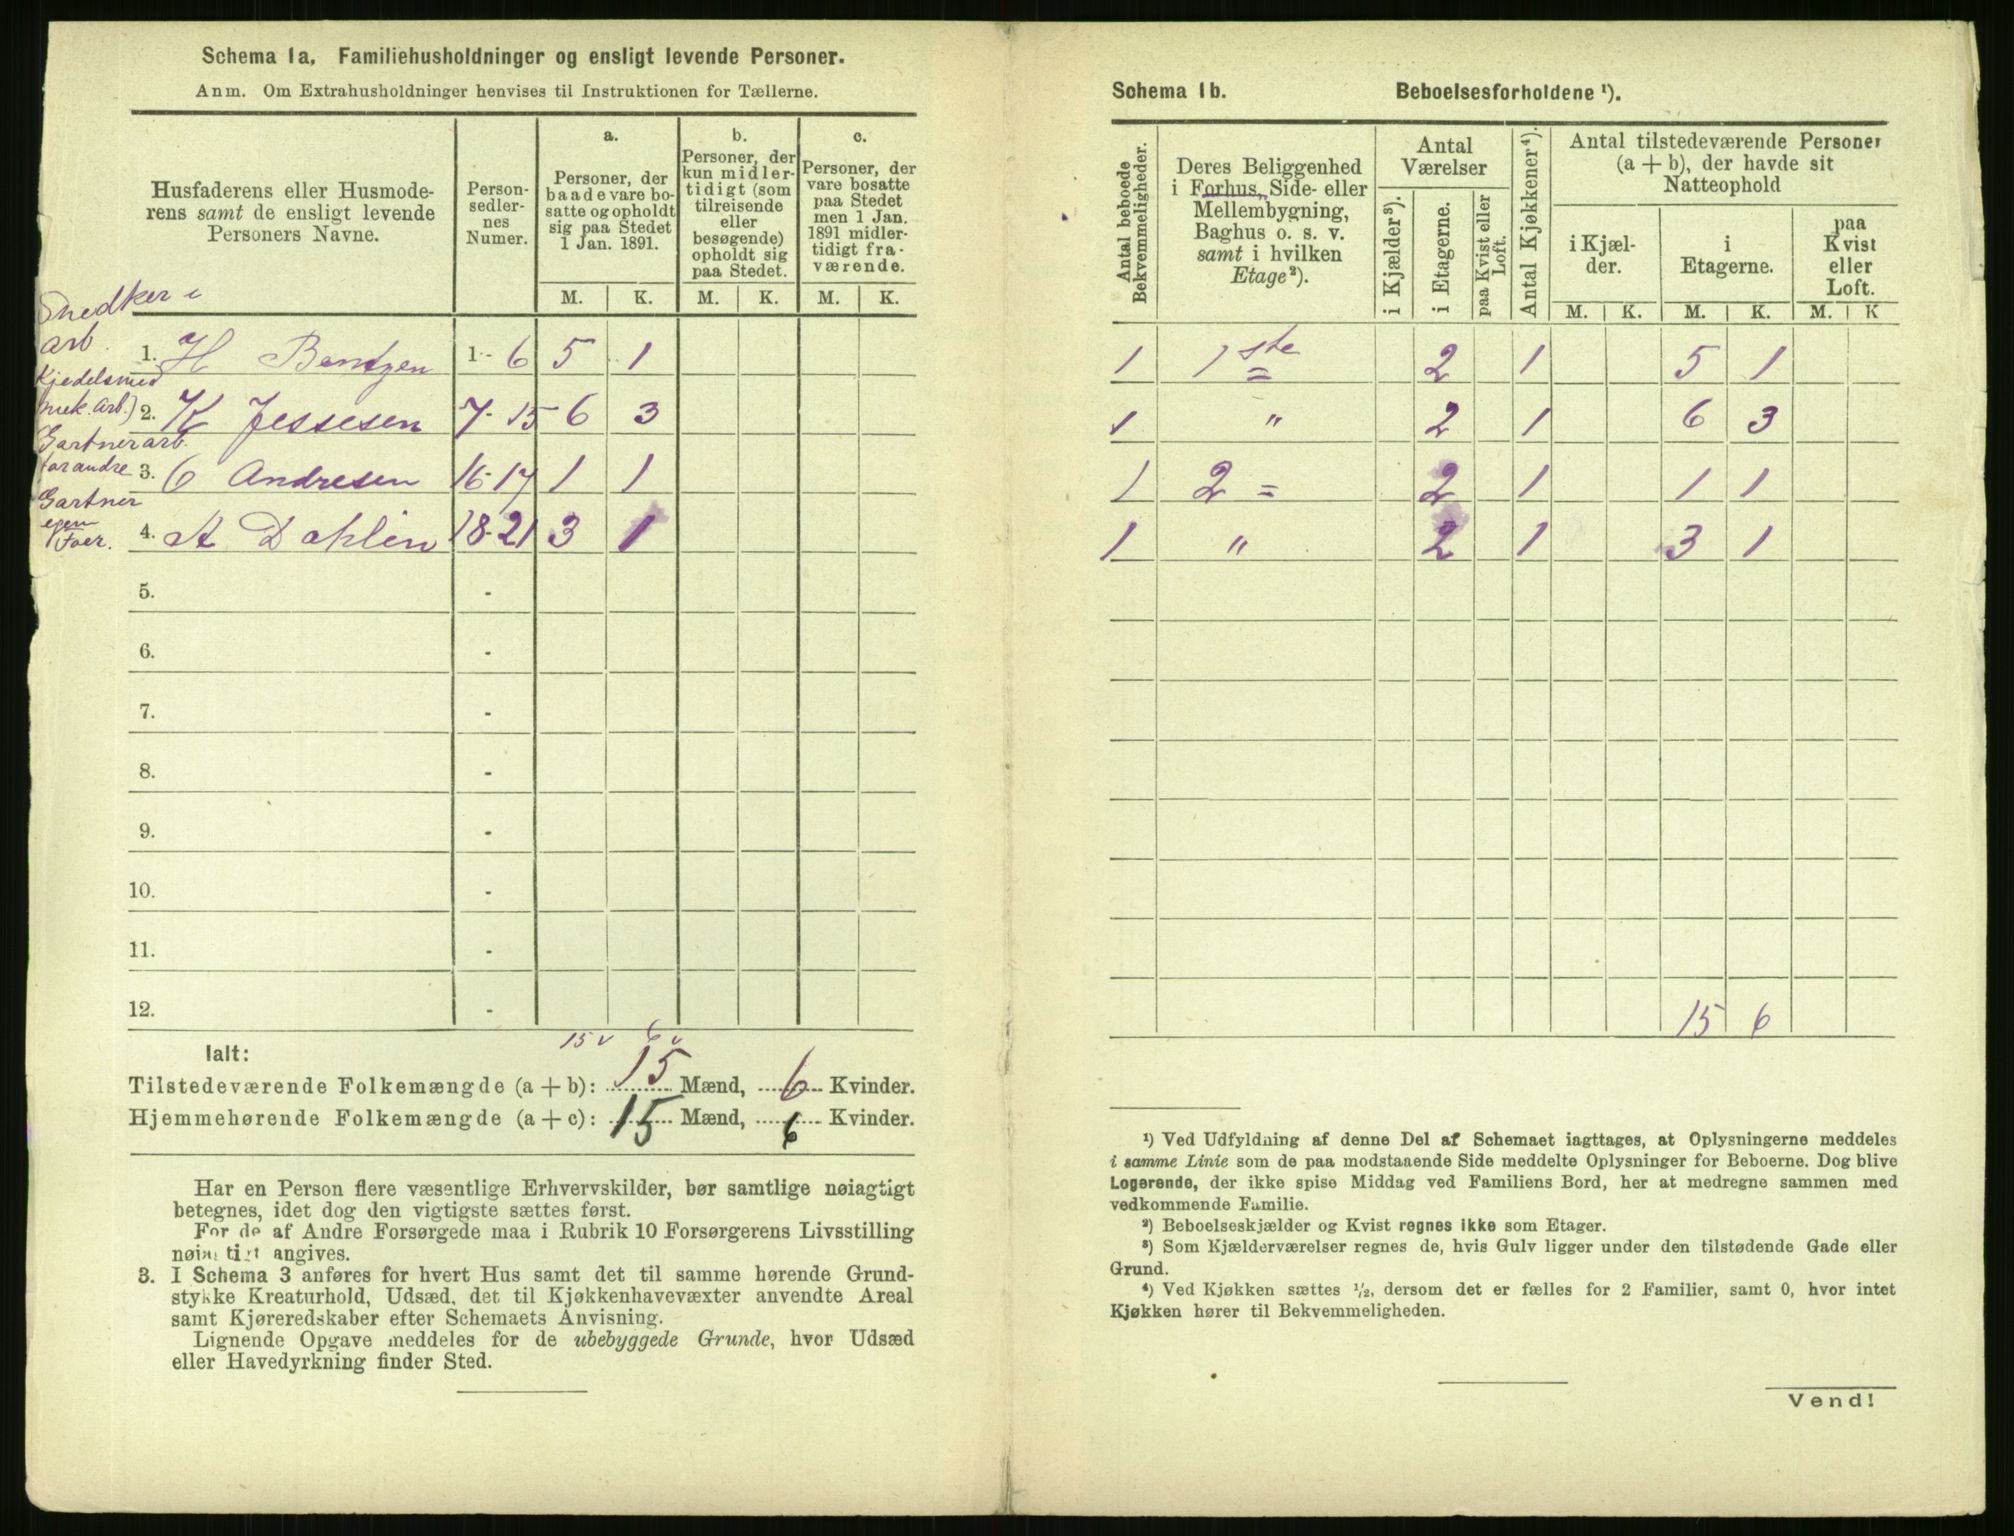 Schema 1a. Familiehusholdninger og ensligt levende Personer.
Anm. Om Extrahusholdninger henvises til Instruktionen for Tællerne.
Husfaderens eller Husmoderens samt de ensligt levende Personers Navne.
Personsedlernes Numer.
a.
Personer, der baade vare bosatte og opholdt sig paa Stedet 1 Jan. 1891.
b.
Personer, der kun midlertidigt (som tilreisende eller besøgende) opholdt sig paa Stedet.
c.
Personer, der vare bosatte paa Stedet men 1 Jan. 1891 midlertidigt fraværende.
M. K. M. K. M. K.
Snedker i
arb.
1. H Bentzen 1 - 6 5 1
Kjedelsmed
(mek. arb.)
2. K Jessesen 7 - 15 6 3
Gartnerarb.
for andre
3. C Andresen 16 - 17 1 1
Gartner
egen
4. A Dahlin 18 - 21 3 1
5. -
6. -
7. -
8. -
9. -
10. -
11. -
12. -
15 v 6 v
Ialt:
Tilstedeværende Folkemængde (a + b): 15 Mænd, 6 Kvinder.
Hjemmehørende Folkemængde (a + c): 15 Mænd, 6 Kvinder.
Har en Person flere væsentlige Erhvervskilder, bør samtlige nøiagtigt
betegnes, idet dog den vigtigste sættes først.
For de af Andre Forsørgede maa i Rubrik 10 Forsørgerens Livsstilling
nøiagtigt angives.
3. I Schema 3 anføres for hvert Hus samt det til samme hørende Grund-
stykke Kreaturhold, Udsæd, det til Kjøkkenhavevæxter anvendte Areal
samt Kjøreredskaber efter Schemaets Anvisning.
Lignende Opgave meddeles for de ubebyggede Grunde, hvor Udsæd
eller Havedyrkning finder Sted.
Schema 1b. Beboelsesforholdene ¹).
Antal beboede Bekvemmeligheder.
Deres Beliggenhed i Forhus, Side- eller Mellembygning, Baghus o. s. v. samt i hvilken Etage²).
Antal Værelser
i Kjælder³).
i Etagerne.
paa Kvist eller Loft.
Antal Kjøkkener⁴).
Antal tilstedeværende Personer
(a + b), der havde sit
Natteophold
i Kjælder.
i Etagerne.
paa Kvist eller Loft.
M. K. M. K. M. K
1 1ste = 2 1 5 1
1 " 2 1 6 3
1 2 = 2 1 1 1
1 " 2 1 3 1
15 6
¹) Ved Udfyldning af denne Del af Schemaet iagttages, at Oplysningerne meddeles
i samme Linie som de paa modstaaende Side meddelte Oplysninger for Beboerne. Dog blive
Logerende, der ikke spise Middag ved Familiens Bord, her at medregne sammen med
vedkommende Familie.
²) Beboelseskjælder og Kvist regnes ikke som Etager.
³) Som Kjælderværelser regnes de, hvis Gulv ligger under den tilstødende Gade eller
Grund.
⁴) Ved Kjøkken sættes ½, dersom det er fælles for 2 Familier, samt 0, hvor intet
Kjøkken hører til Bekvemmeligheden.
Vend!